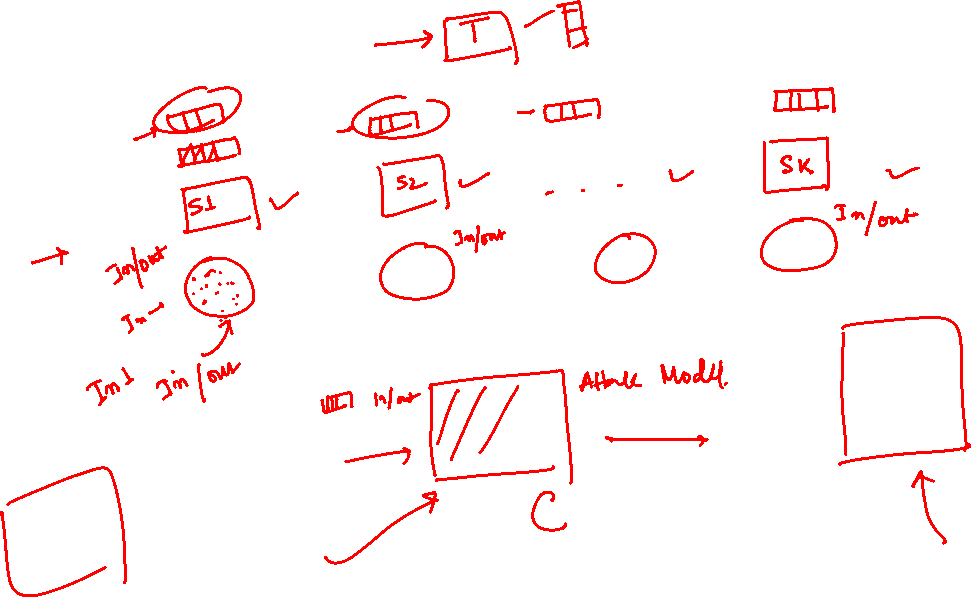 T
S1
S2
SK
In/out
In/out
In/out
In
In/out
In/out
Attack Model.
C